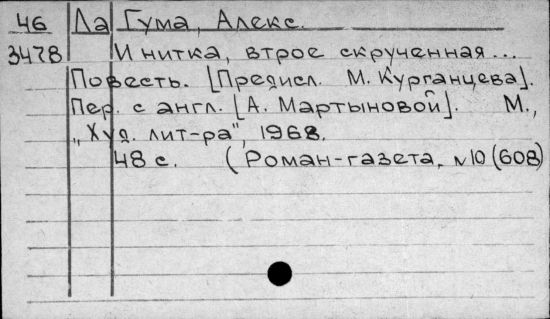 46 Ла Гума, Алекс.
3478 И нитка, втрое скрученная...
Повесть. [Предисл. М. Курганцева].
Пер. с англ. [А. Мартыновой]. М.,
„Худ. лит-ра", 1968.
48 с. (Роман-газета, №10 (608)